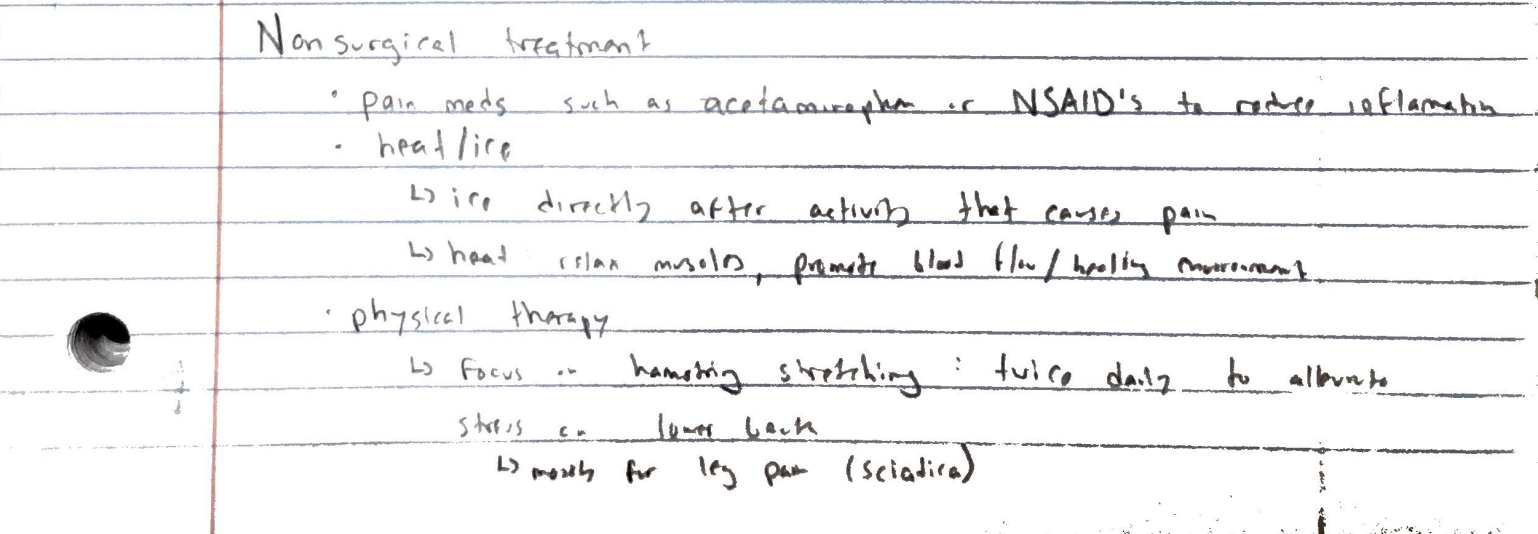 Nonsurgical treatment
· pain meds such as acetaminophen or NSAID's to reduce inflamation
· heat/ice
↳ ice directly after activity that causes pain
↳ heat relax muscles, promote blood flow/healing environment
· physical therapy
↳ Focus on hamstring stretching : twice daily to alleviate
stress on lower back
↳ mostly for leg pain (sciatica)